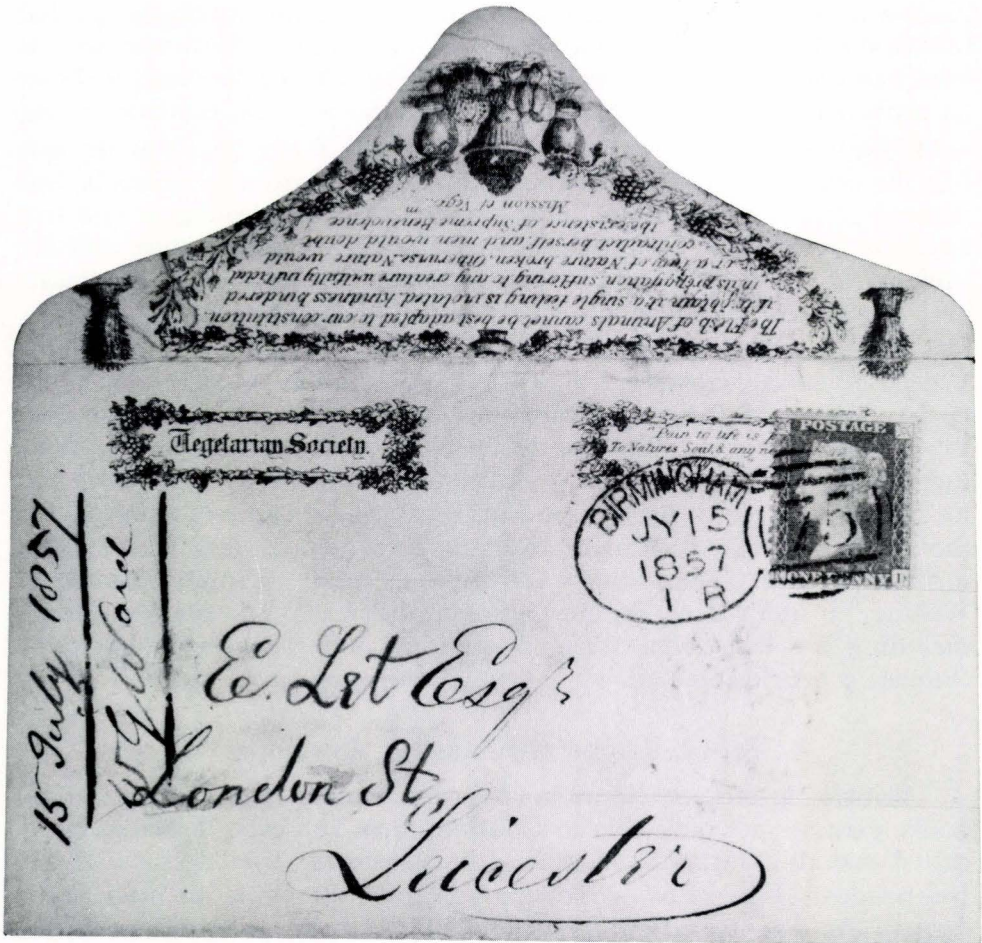 The Flesh of Animals cannot be best adapted to our constitution,
if to obtain it a single feeling is violated, kindness hindered
in its propagation, suffering to any creature wilfully inflicted
or a Law of Nature broken. Otherwise Nature would
contradict herself and men would doubt
the existence of Supreme Benevolence
Mission of
Vegetarian Society.
"Pain to life is
To Natures Soul, & any
POSTAGE
ONE PENNY
D
BIRMINGHAM
JY 15
1857
1 R
75
15 July 1857
W G Ward
E. Let Esqr
London St
Leicester